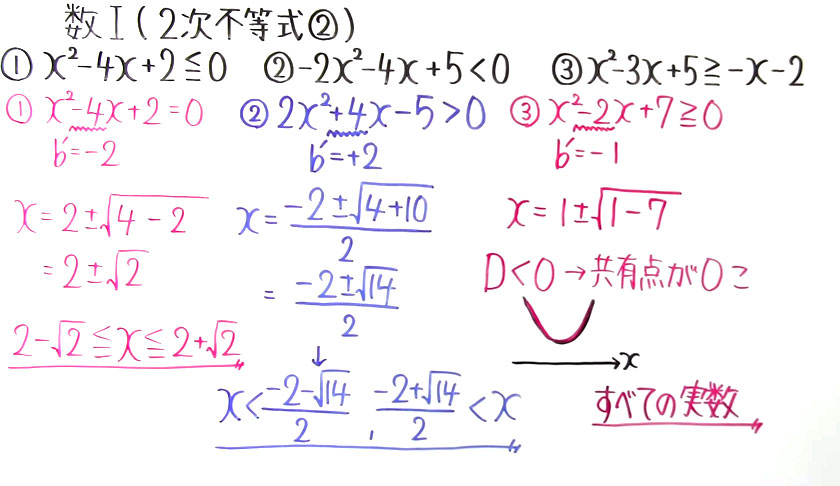 数I(2次不等式②)
① x²-4x+2≦0 ② -2x²-4x+5<0 ③ x²-3x+5≧-x-2
① x²-4x+2=0
b'=-2
x=2±√(4-2)
=2±√2
2-√2≦x≦2+√2
② 2x²+4x-5>0
b'=+2
x=(-2±√(4+10))/2
=(-2±√14)/2
↓
x<(-2-√14)/2, (-2+√14)/2<x
③ x²-2x+7≧0
b'=-1
x=1±√(1-7)
D<0→共有点が0こ
x
すべての実数